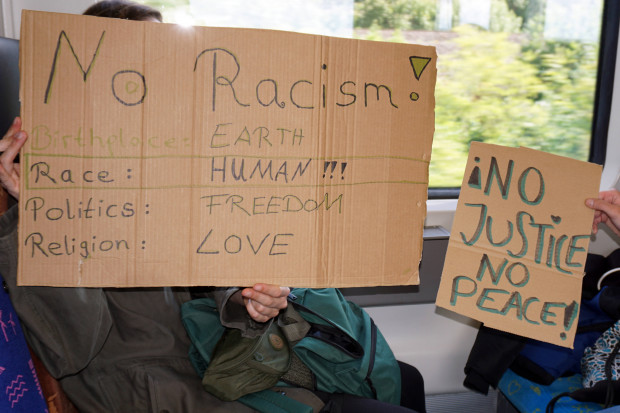 No Racism!
Birthplace: EARTH
Race: HUMAN!!!
Politics: FREEDOM
Religion: LOVE
¡NO
JUSTICE
NO
PEACE!